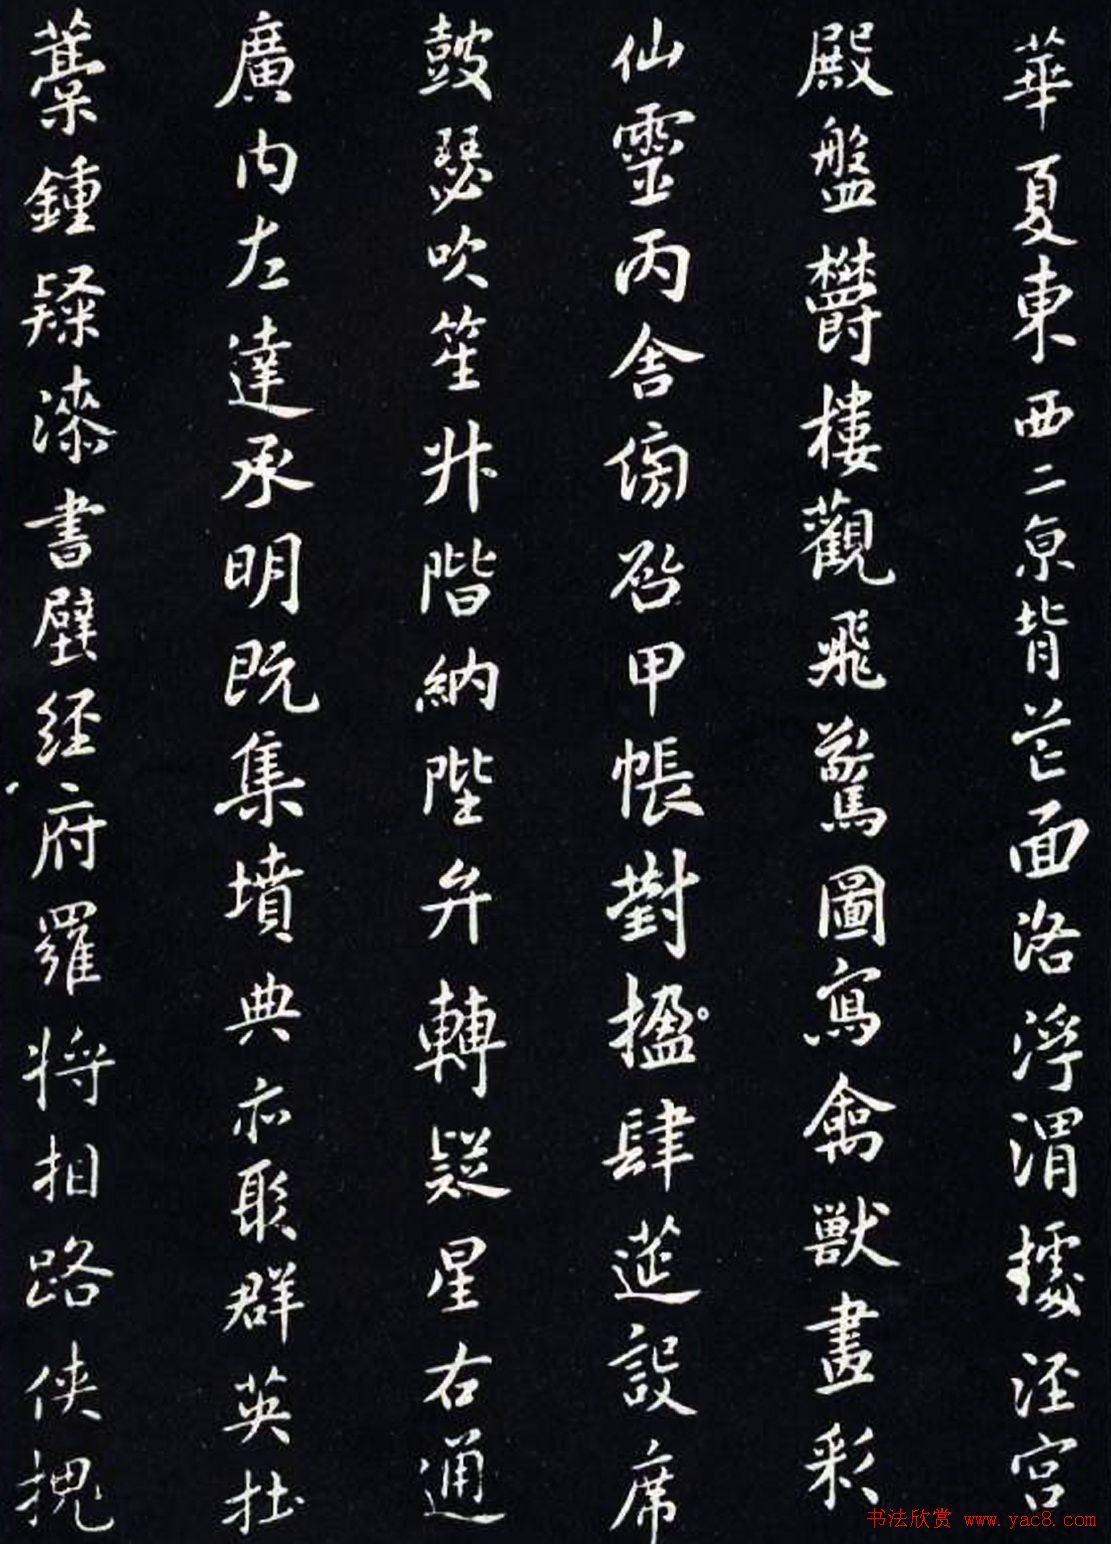 華夏東西二京背芒面洛浮渭據涇宮
殿盤欝樓觀飛驚圖寫禽獸畫彩
仙靈丙舍傍啟甲帳對楹肆莚設席
鼓瑟吹笙升階納陛弁轉疑星右通
廣内左達承明既集墳典亦聚群英杜
藁鍾隸漆書壁経府羅将相路侠槐
书法欣赏 www.yac8.com